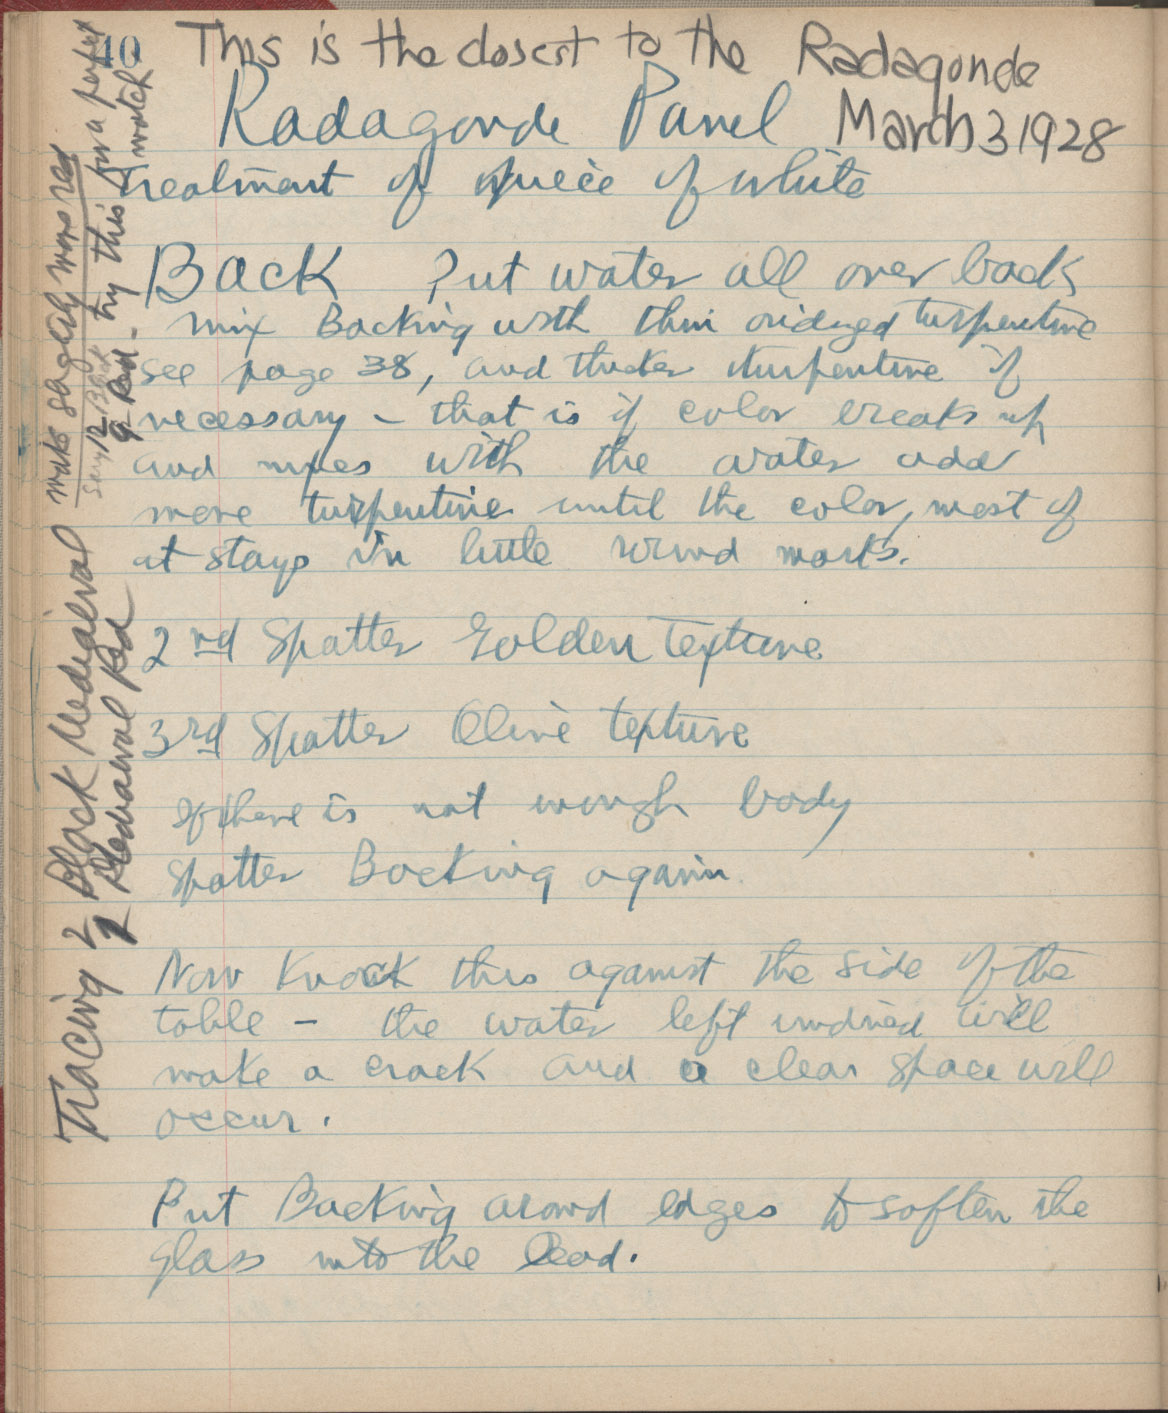 40 This is the closest to the Radagonde
Radagonde Panel March 3 1928
Treatment of piece of white
Back Put water all over back
mix Backing with thin oxidized turpentine
see page 38, and thicker turpentine if
necessary – that is if color breaks up
and mixes with the water add
more turpentine until the color, most of
at stays in little round marks.
2nd Spatter Golden Texture
3rd Spatter Olive texture
If there is not enough body
spatter Backing again.
Now Knock this against the side of the
table – the water left undried will
make a crack and a clear space will
occur.
Put Backing around edges to soften the
glass into the lead.
Tracing 2 Black Mediaeval
1 Mediaeval Red
make slightly more red
12 Black
9 Red - try this for a perfect
match